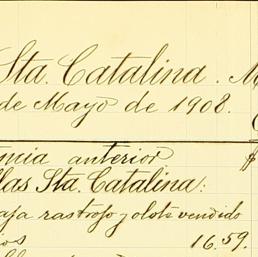 Sta. Catalina. M
de Mayo de 1908.
ncia anterior $
las Sta. Catalina:
aja rastrojo y olote vendido
ios 16.59.